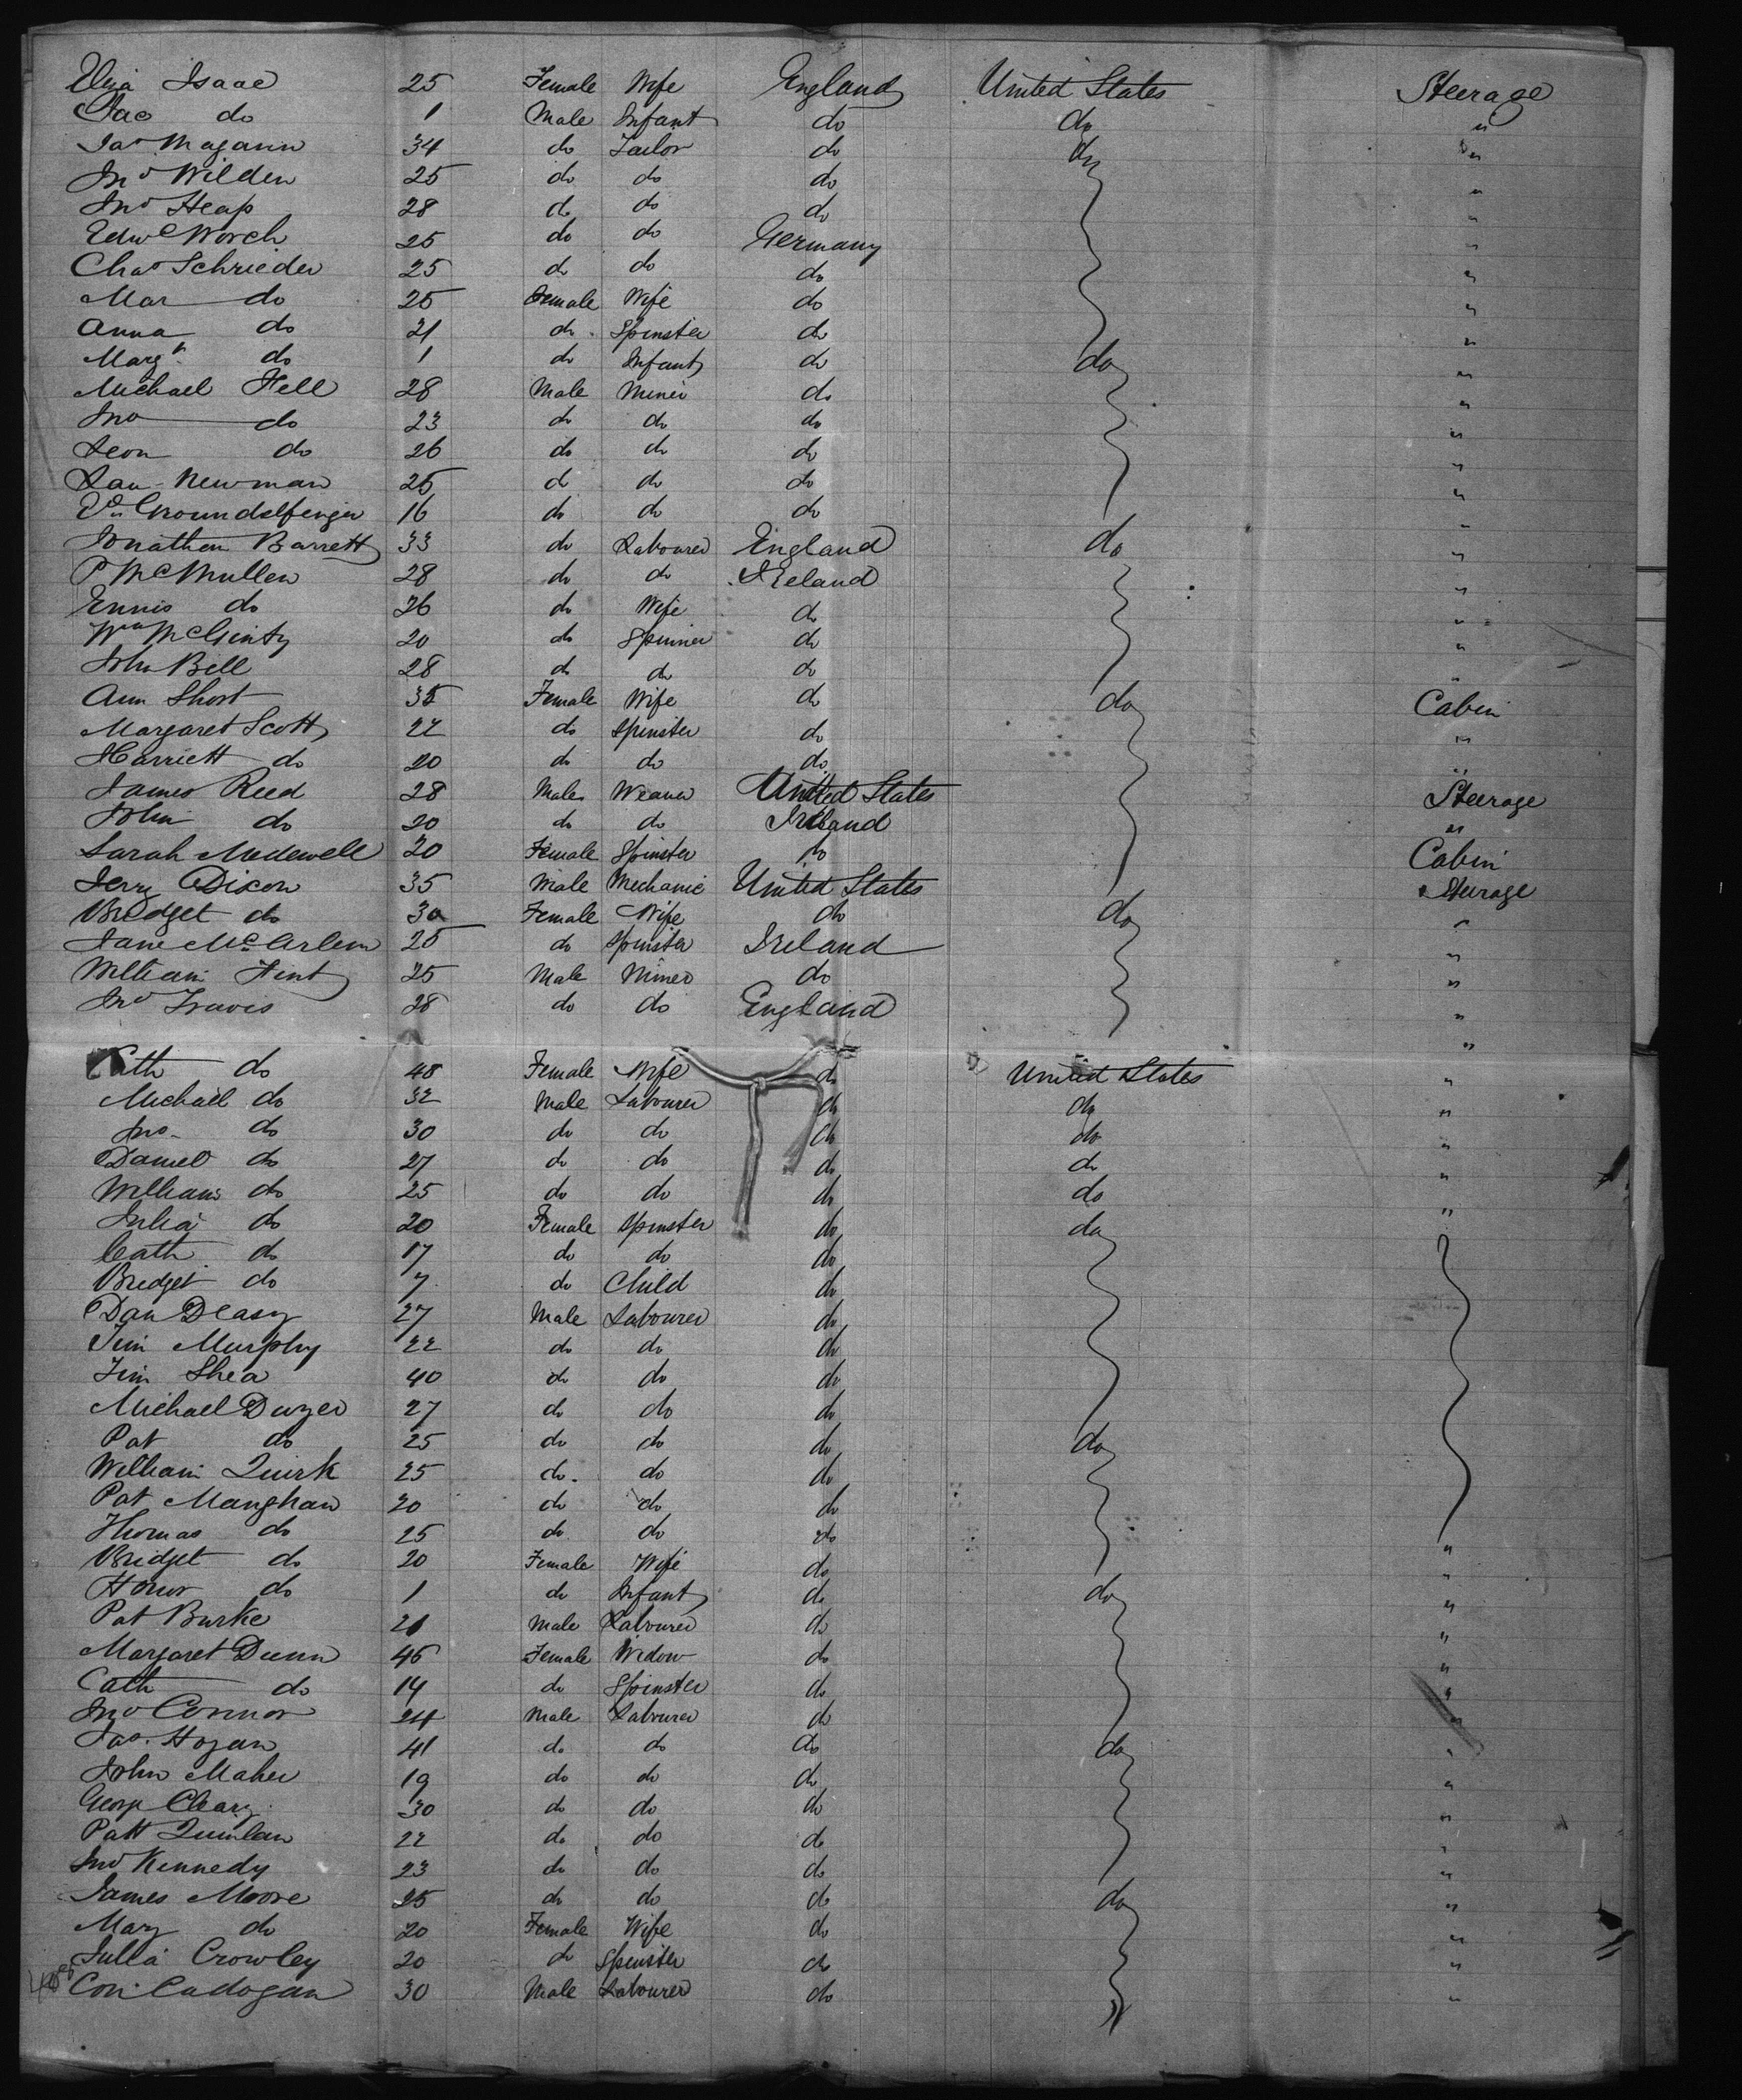 Eliza Isaac 25 Female Wife England United States Steerage
Jas do 1 Male Infant do do "
Jas Magann 34 do Tailor do do "
Jno Wilden 25 do do do "
Jno Heap 28 do do do "
Edwd Worch 25 do do Germany "
Chas Schrieder 25 do do do "
Mar do 25 Female Wife do "
Anna do 21 do Spinster do "
Margt do 1 do Infant do do "
Michael Hell 28 Male Miner do "
Jno do 23 do do do "
Leon do 26 do do do "
Lau Newman 25 do do do "
Groundelfinger 16 do do do "
Jonathan Barrett 33 do Labourer England do "
P McMullen 28 do do Ireland "
Ennis do 26 do Wife do "
Wm McGinty 20 do Spinner do "
John Bell 28 do do do "
Ann Short 35 Female Wife do do Cabin
Margaret Scott 22 do Spinster do "
Harriett do 20 do do do "
James Reed 28 Male Weaver United States Steerage
John do 20 do do Ireland "
Sarah Medewell 20 Female Spinster do Cabin
Jerry Dixon 35 Male Mechanic United States Steerage
Bridget do 30 Female Wife do do "
Jane McArlem 25 do Spinster Ireland "
William Fint 25 Male Miner do "
Jno Travis 28 do do England "
Cath do 48 Female Wife do United States "
Michael do 32 Male Labourer do do "
Jno do 30 do do do do "
Daniel do 27 do do do do "
William do 25 do do do do "
Julia do 20 Female Spinster do do
Cath do 17 do do do
Bridget do 7 do Child do
Dan Deasy 27 Male Labourer do
Jim Murphy 22 do do do
Jim Shea 40 do do do
Michael Dwyer 27 do do do
Pat do 25 do do do do
William Quirk 25 do do do
Pat Manghan 20 do do do
Thomas do 25 do do do
Bridget do 20 Female Wife do "
Honor do 1 do Infant do do "
Pat Burke 21 Male Labourer do "
Margaret Dunn 45 Female Widow do "
Cath do 14 do Spinster do "
Jno Connor 24 Male Labourer do "
Jas. Hogan 41 do do do do "
John Maher 19 do do do "
George Cleary 30 do do do "
Patt Quinlan 22 do do do "
Jno Kennedy 23 do do do "
James Moore 25 do do do do "
Mary do 20 Female Wife do "
Julia Crowley 20 do Spinster do "
Con Cadogan 30 Male Labourer do "